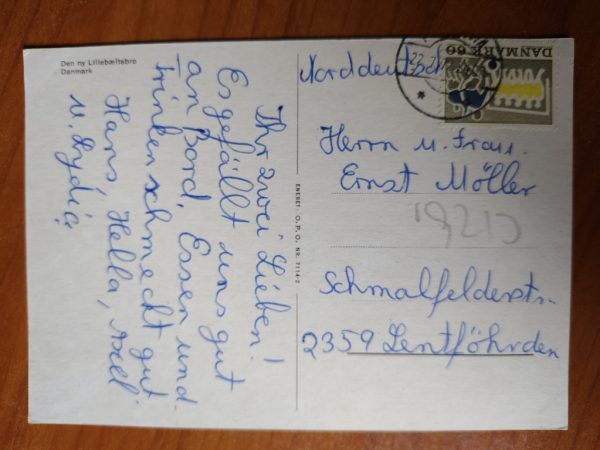 Den ny Lillebæltsbro
Danmark
Ihr zwei Lieben!
Es gefällt uns gut
an Bord. Essen und
trinken schmeckt gut
Hans, Hella, Axel
u. Lydia
ENERET: O.P.O. NR. 7114-2
DANMARK 60
Norddeutschl
Herrn u. Frau
Ernst Möller
Schmalfelderstr.
2359 Lentföhrden